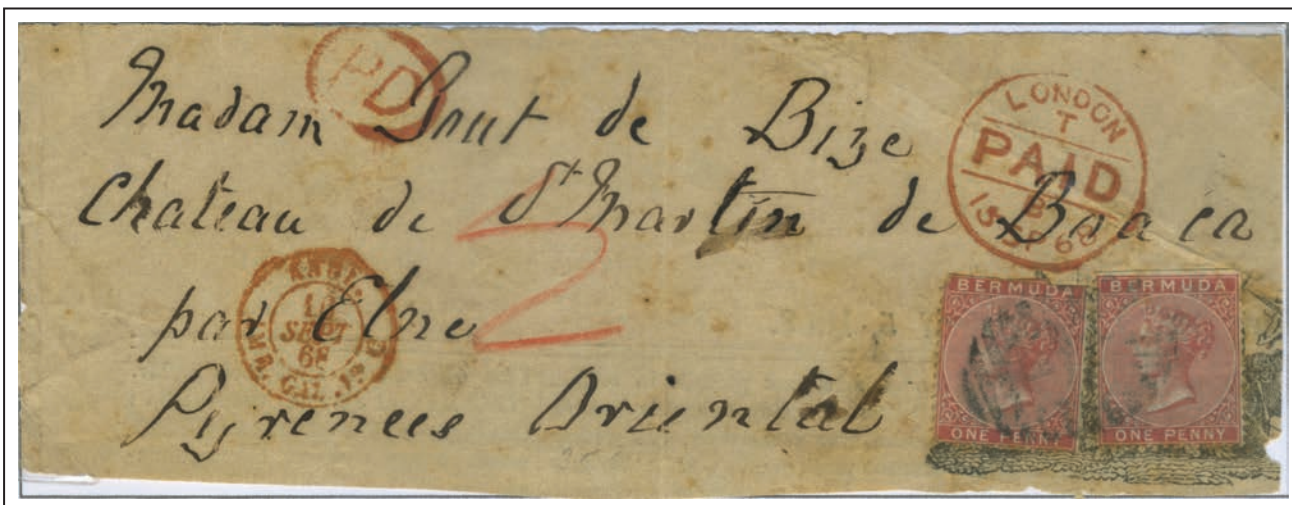 PD
Madam Bout de Bize
Chateau de St Martin de
par Elne
Pyrenees Oriental
2
LONDON
T
PAID
SEPT
68
AMB. CAL.
BERMUDA
ONE PENNY
BERMUDA
ONE PENNY